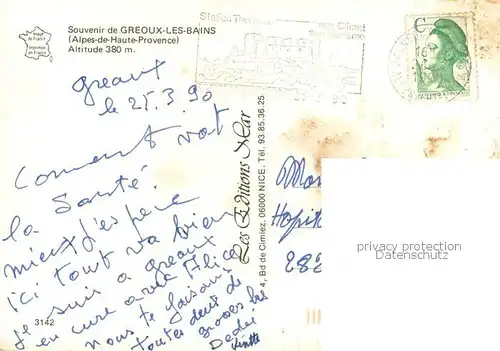 Image de France
Imprimé en France
Souvenir de GREOUX-LES-BAINS
(Alpes-de-Haute-Provence)
Altitude 380 m.
Station Thermale
son Climat
C
Greoux
le 25.3.90
Coment vat
la Santé
mieux j'espère
ici tout va bien
je suis a greoux
en cure avec Alice
nous te faisons
toutes deux de
grosses bis
Dedei
3142
Les Editions Mar
4, Bd de Cimiez, 06000 NICE, Tél. 93.85.36.25
Hopit
282
privacy protection
Datenschutz